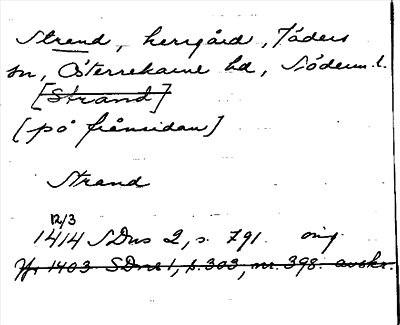 Strand, herrgård, Jäders
sn, Österrekarne hd, Söderm.l.
[Strand]
[på framsidan]
Strand
12/3
1414 SDns 2, s. 791. orig.
Jfr 1403 SDns 1, s. 303, nr. 398. avskr.